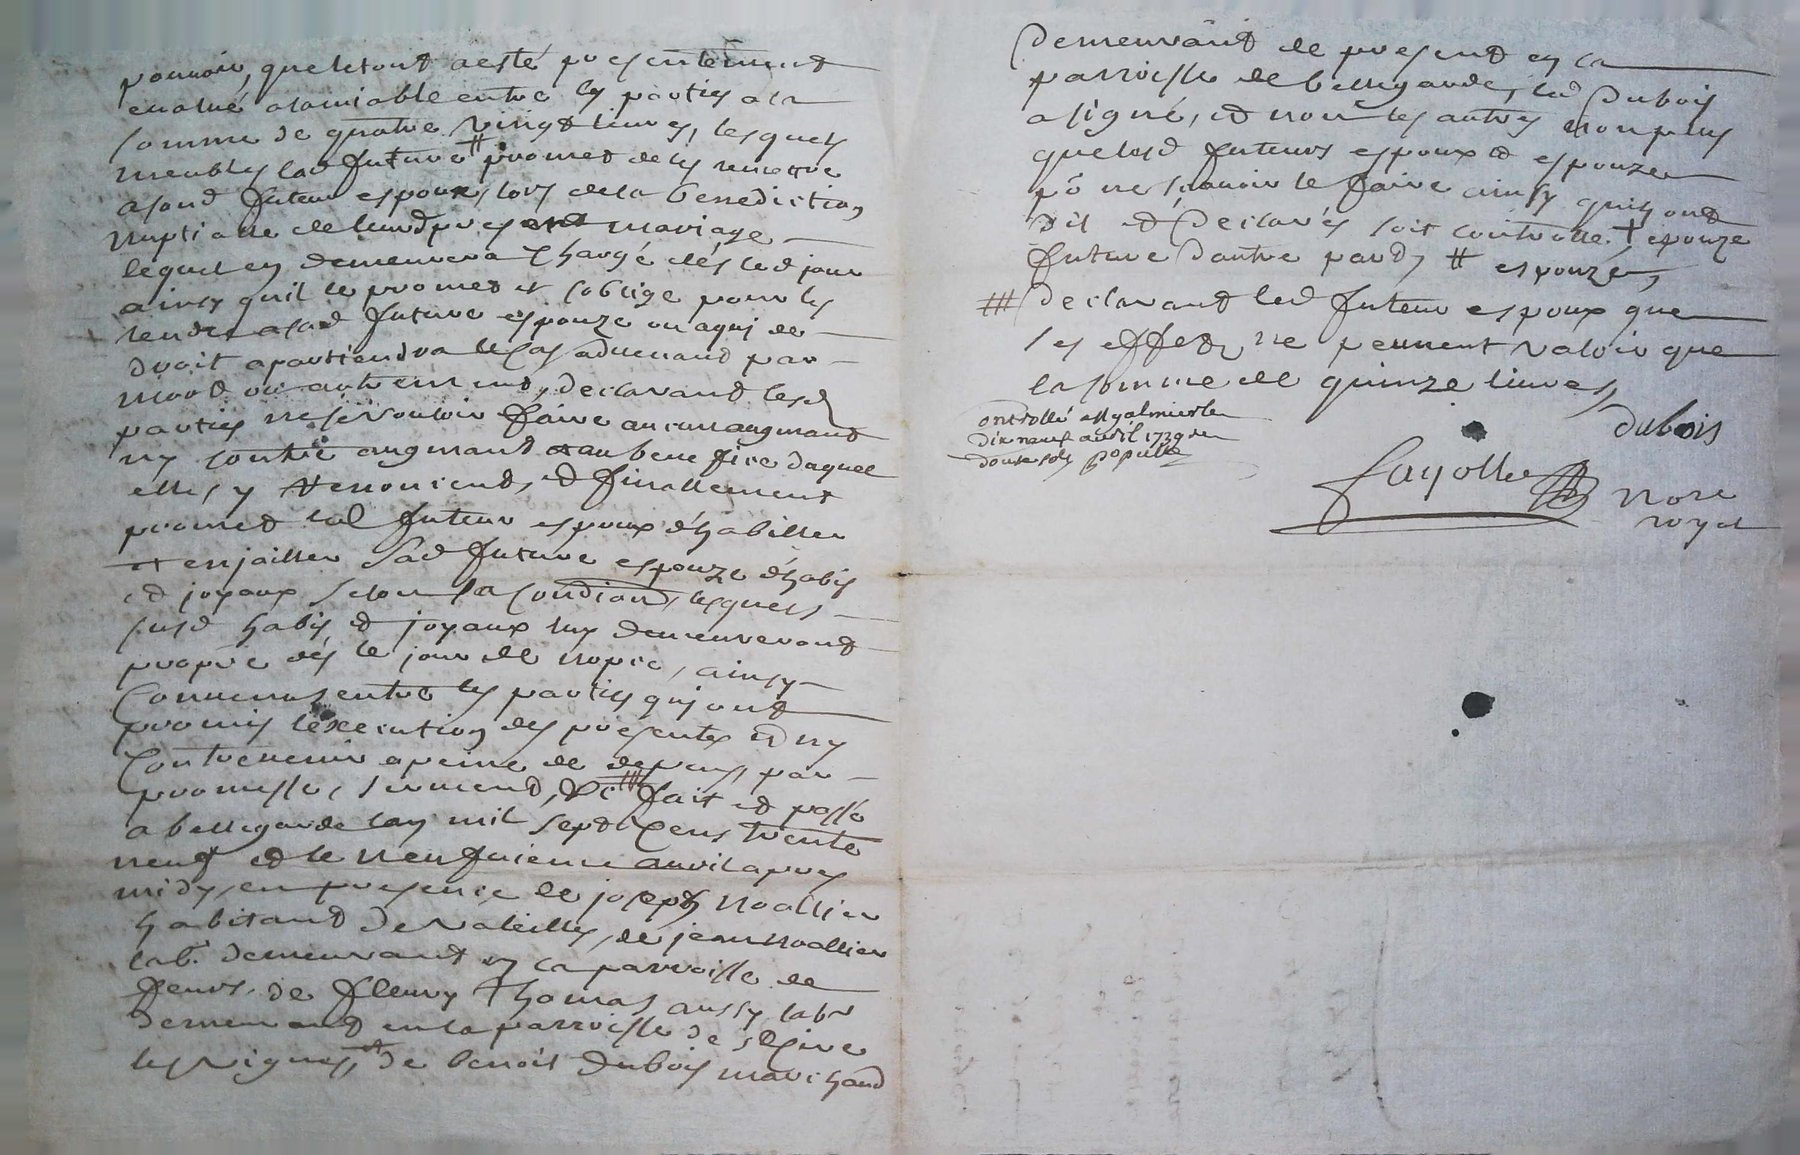 pouvoir, que letout a esté presentement
evalué alamiable entre les parties a la
somme de quatre vingt livres, lesquels
meubles lad future # promet de les remettre
a sond futur espoux, lors de la benediction
nuptialle de leurd present mariage
lequel en demeurera chargé dés led jour
ainsy quil le promet et soblige pour les
rendre a sad future espouze ou a qui de
droit apartiendra le cas advenant par
mort ou autrement, declarant lesd
parties ne si vouloir faire aucun augmand
ny contre augmand au benefice daquel
elles y renoncent, et finallement
promet led futeur espoux d'habiller
et enjailler sad future espouze d'habis
et joyaux selon sa condiond, lesquels
susd habis et joyaux luy demeureront
propre dés le jour de nopce, ainsy
convenus entre les parties qui ont
promis lexecution des presentes et ny
contrevenir a peine de depens, par
promesse, serment, &c ### fait et passé
a bellegarde lan mil sept cens trente
neuf et le neufuieme avril apres
midy, en presence de joseph noallier
habitant de valeilles, de jean noallier
labr. demeurant en la parroisse de
feurs, de fleury thomas aussy labr
demeurant en la parroisse de st Cire
les vignes, et de benoit dubois marchand
demeurant de present en la
parroisse de bellegarde, led dubois
a signé, et non les autres non plus
que lesd futeurs espoux et espouze
po ne scavoir le faire ainsy quils ont
dit et declarés soit controllé. † epouze
future dautre part, # espouze,
### declarant led futeur espoux que
ses effets ne peuvent valoir que
la somme de quinze livres,
dubois
ontrollé a st galmier le
dix neuf avril 1739 re
douze sols populle
fayolle nore
royal